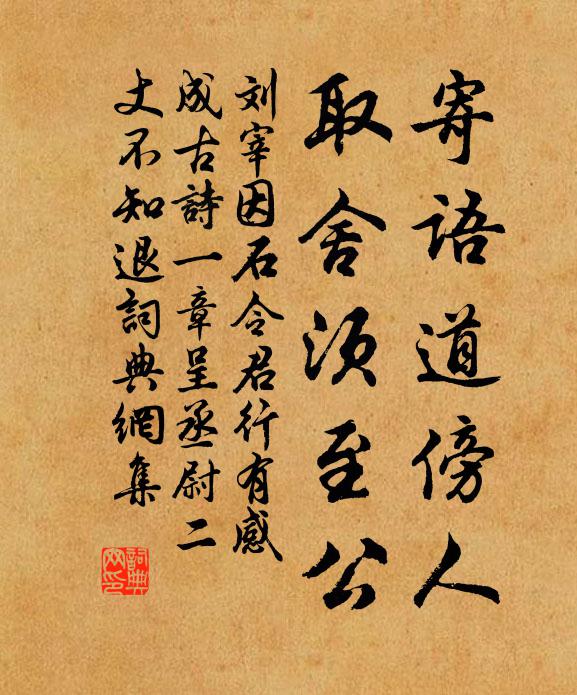 寄语道傍人
取舍须至公
刘宰因石令君行有感
成古詩一章呈丞尉二
丈不知退詞典網集
詞典网印